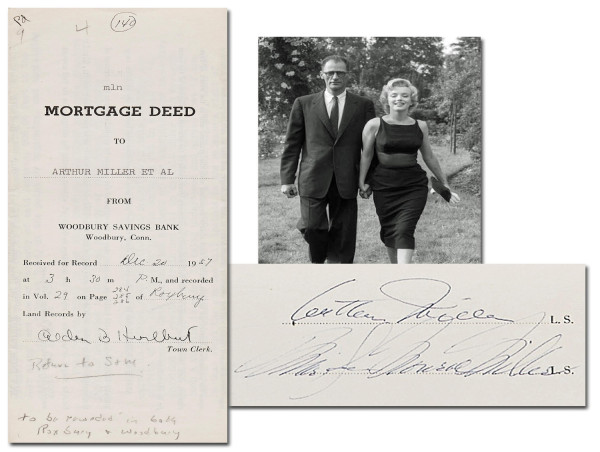 Pd
9
4
140
mln
MORTGAGE DEED
TO
ARTHUR MILLER ET AL
FROM
WOODBURY SAVINGS BANK
Woodbury, Conn.
Received for Record Dec 20 1957
at 3 h 30 m P. M., and recorded
in Vol. 29 on Page 284 285 286 of Roxbury
Land Records by
Alden B Hurlbut
Town Clerk.
Return to Same
to be recorded in both
Roxbury & Woodbury
Arthur Miller L. S.
Marilyn Monroe Miller L.S.